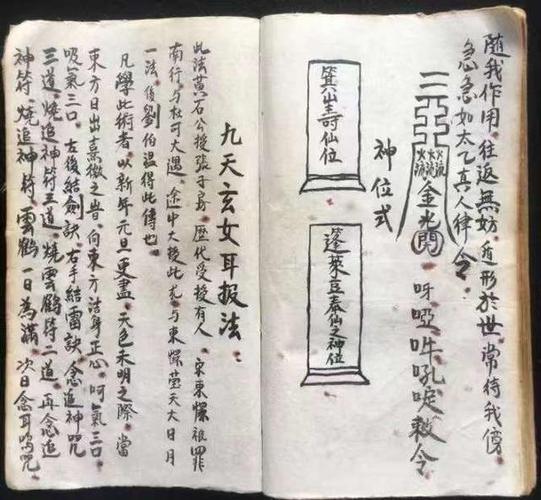 隨我作用往返無妨遁形於世常待我傍
急急如太乙真人律令
金光閃
呀啞吽吼唳敕令
神位式
箕堂壽仙位
蓬萊豆泰仙之神位
九天玄女耳报法
此法黃石公授張子房歷代受授有人宋東
南行与杜可大遇途中大授此术与東天大日月
一法後劉伯温得此傳也
凡學此術者以新年元旦更盡天色未明之際當
東方日出熹微之向東方潔身正心呵氣三口
吸氣三口左後結劍訣右手結雷訣念追神咒
三道燒追神符三道燒雲鶴符二道再念追
神符燒追神符雲鶴一日為滿次日念耳鳴咒